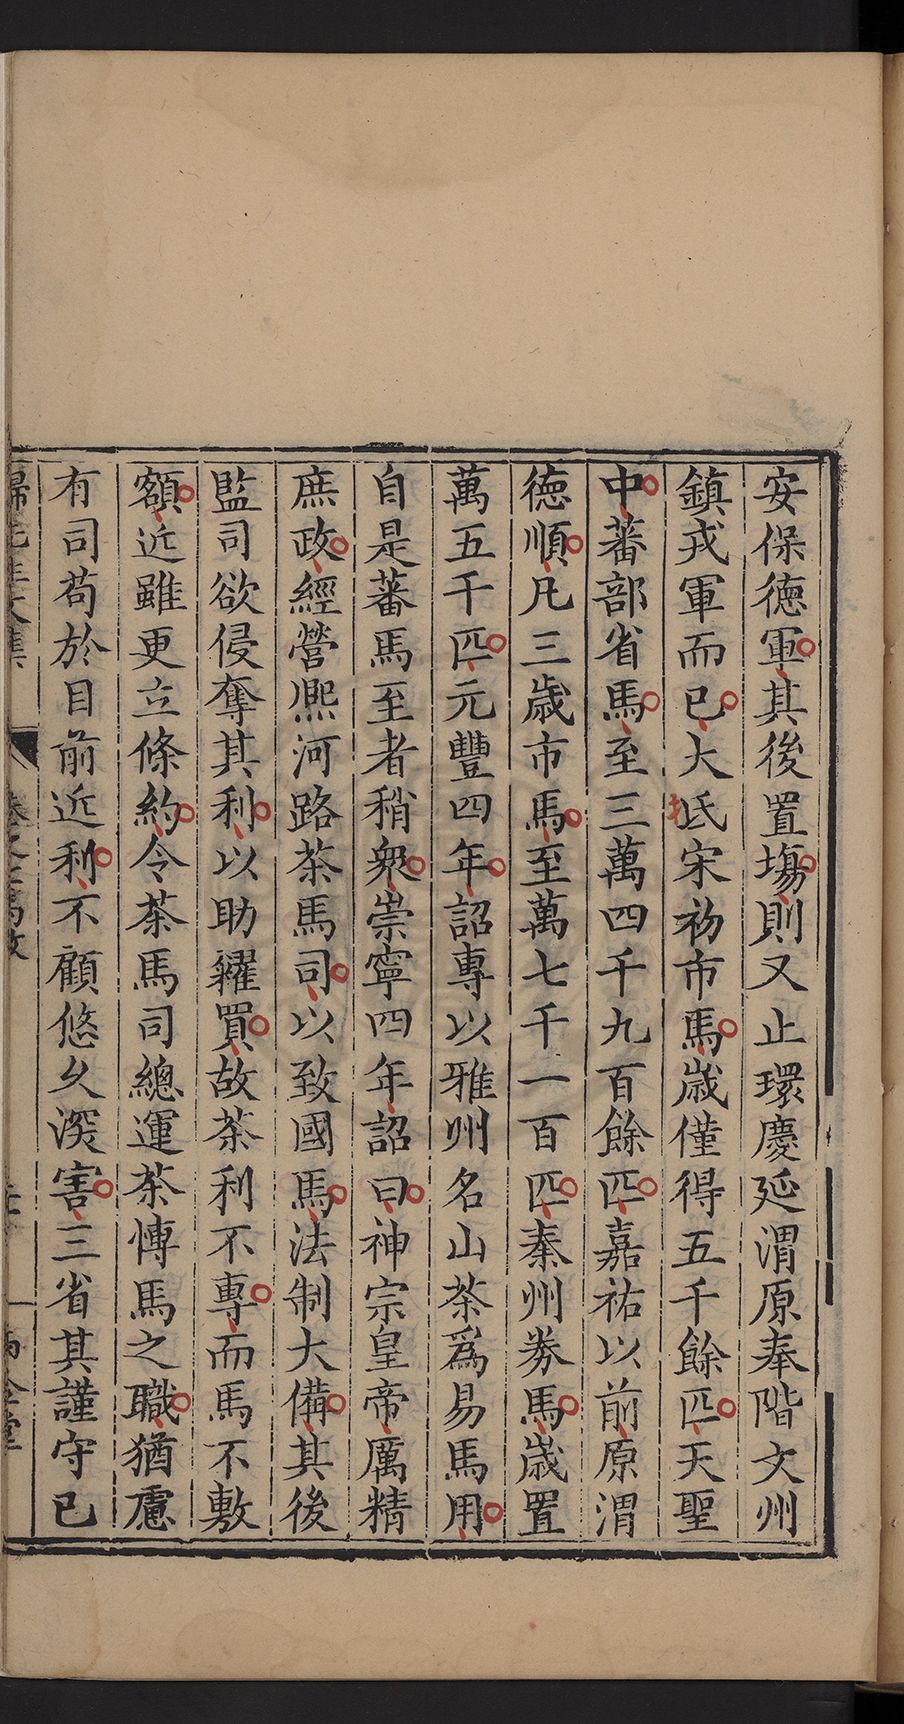 安保德軍其後置塲則又止環慶延渭原奉階文州
鎮戎軍而已大氐宋初市馬歲僅得五千餘匹天聖
中蕃部省馬至三萬四千九百餘匹嘉祐以前原渭
德順凡三歲市馬至萬七千一百匹秦州券馬歲置
萬五千匹元豐四年詔專以雅州名山茶爲易馬用
自是蕃馬至者稍衆崇寧四年詔曰神宗皇帝厲精
庶政經營熈河路茶馬司以致國馬法制大備其後
監司欲侵奪其利以助糴買故茶利不專而馬不敷
額近雖更立條約令茶馬司總運茶愽馬之職猶慮
有司苟於目前近利不顧悠久深害三省其謹守已